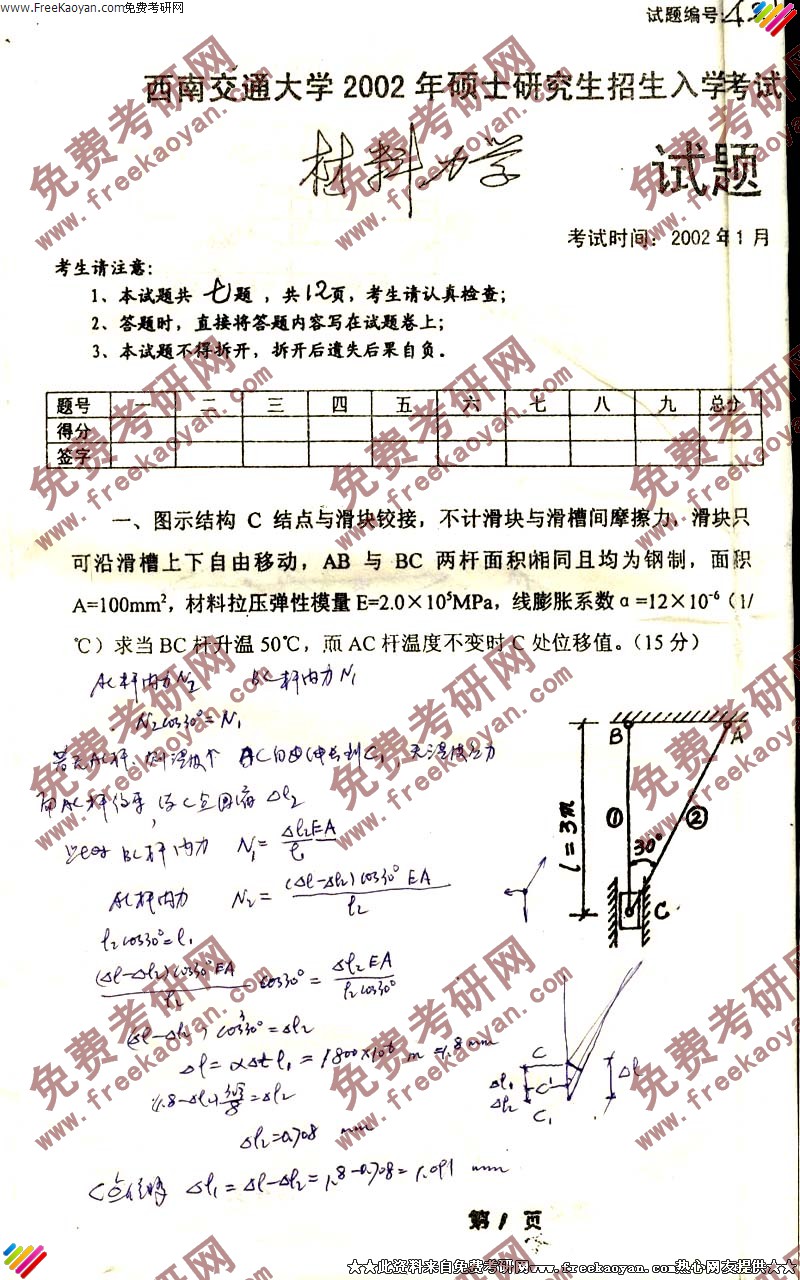 www.FreeKaoyan.com免费考研网
试题编号:
西南交通大学2002年硕士研究生招生入学考试
材料力学 试题
考试时间：2002年1月
考生请注意：
1、本试题共 七题 ，共12页，考生请认真检查；
2、答题时，直接将答题内容写在试题卷上；
3、本试题不得拆开，拆开后遗失后果自负。
题号 一 二 三 四 五 六 七 八 九 总分
得分
签字
一、图示结构 C 结点与滑块铰接，不计滑块与滑槽间摩擦力，滑块只
可沿滑槽上下自由移动，AB 与 BC 两杆面积相同且均为钢制，面积
A=100mm²，材料拉压弹性模量 E=2.0×10⁵MPa，线膨胀系数 α=12×10⁻⁶（1/
℃）求当 BC 杆升温 50℃，而 AC 杆温度不变时 C 处位移值。（15 分）
AC杆内力N₂ BC杆内力N₁
N₂cos30°=N₁
B A
① ②
l=3m
30°
C
此时 BC杆内力 N₁=Δl₂EA/l₁
AC杆内力 N₂=(Δl-Δl₂)cos30° EA/l₂
l₂cos30°=l₁
(Δl-Δl₂)cos30°EA/l₂ cos30°=Δl₂EA/l₂cos30°
(Δl-Δl₂)cos³30°=Δl₂
Δl=αΔtl₁=1800×10⁻⁶ m =1.8 mm
Δl₂=0.708 mm
C点位移 Δl₁=Δl-Δl₂=1.8-0.708=1.091 mm
C
Δl₁ C' Δl
Δl₂ C₁
第 1 页
★★此资料来自免费考研网www.freekaoyan.com热心网友提供★★
免费考研网
www.freekaoyan.com